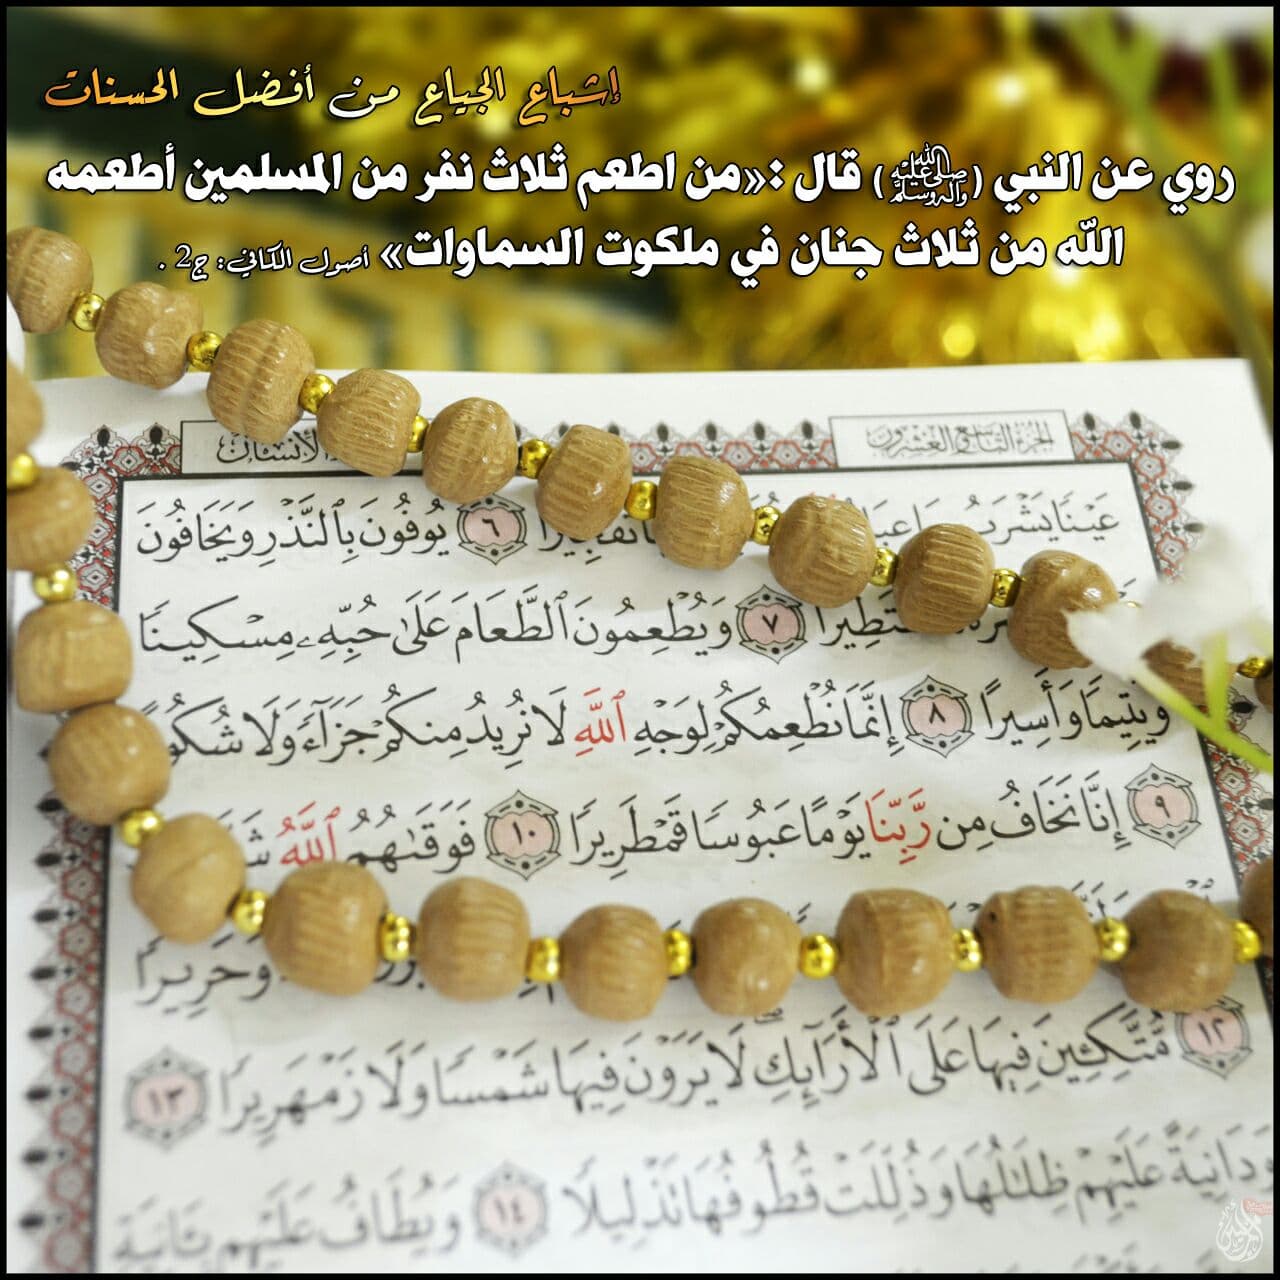 إشباع الجياع من أفضل الحسنات
روي عن النبي (ﷺ) قال :«من اطعم ثلاث نفر من المسلمين أطعمه
الله من ثلاث جنان في ملكوت السماوات» أصول الكافي: ج2 .
الجزء التاسع والعشرون
الأنسان
عَيْنًا يَشْرَبُ ٦ يُوفُونَ بِٱلنَّذْرِ وَيَخَافُونَ
٧ وَيُطْعِمُونَ ٱلطَّعَامَ عَلَىٰ حُبِّهِۦ مِسْكِينًا
وَيَتِيمًا وَأَسِيرًا ٨ إِنَّمَا نُطْعِمُكُمْ لِوَجْهِ ٱللَّهِ لَا نُرِيدُ مِنكُمْ جَزَآءً وَلَا شُكُورًا
٩ إِنَّا نَخَافُ مِن رَّبِّنَا يَوْمًا عَبُوسًا قَمْطَرِيرًا ١٠ فَوَقَىٰهُمُ ٱللَّهُ
وَحَرِيرًا
١٢ مُّتَّكِـِٔينَ فِيهَا عَلَى ٱلْأَرَآئِكِ ۖ لَا يَرَوْنَ فِيهَا شَمْسًا وَلَا زَمْهَرِيرًا ١٣
وَدَانِيَةً عَلَيْهِمْ ظِلَـٰلُهَا وَذُلِّلَتْ قُطُوفُهَا تَذْلِيلًا ١٤ وَيُطَافُ عَلَيْهِم بِـَٔانِيَةٍ